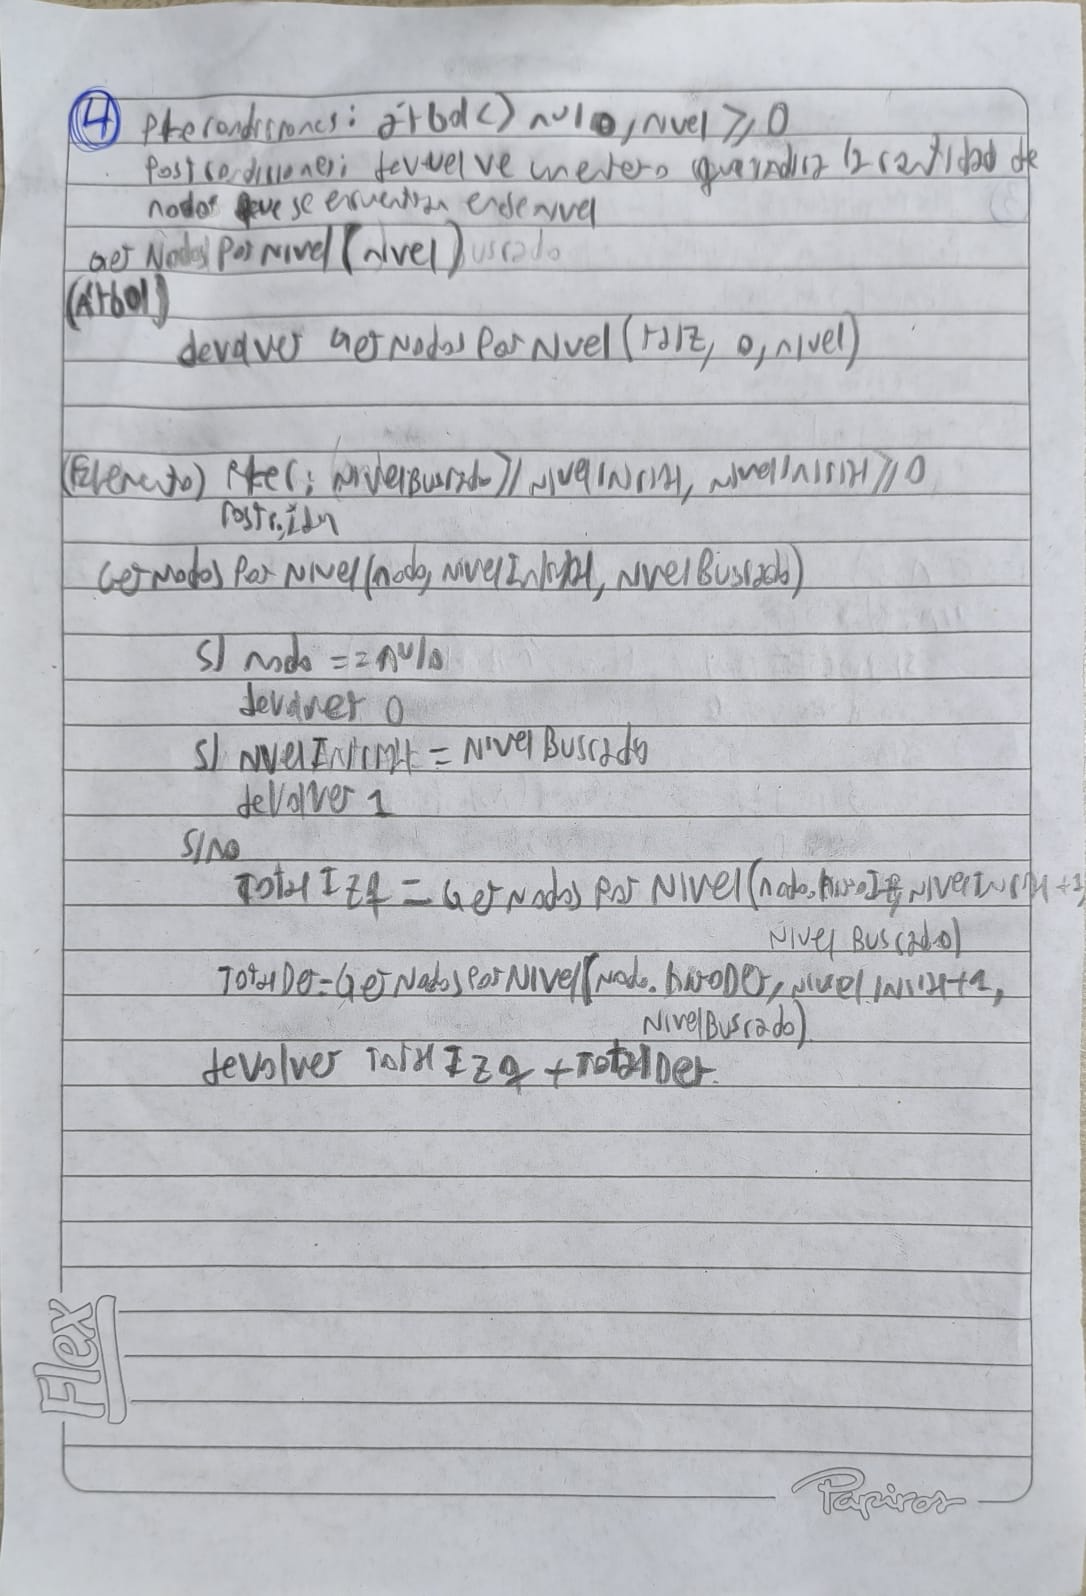 4 Precondiciones: árbol <> nulo, nivel ≥ 0
Postcondiciones: devuelve un entero que indica la cantidad de
nodos que se encuentran en ese nivel
GetNodosPorNivel (nivel) uscado
(Árbol)
devolver GetNodosPorNivel (raiz, 0, nivel)
(Elemento) Prec: NivelBuscado ≥ NivelInicial, NivelInicial ≥ 0
Postc: idm
GetNodosPorNivel (nodo, NivelInicial, NivelBuscado)
SI nodo == nulo
devolver 0
SI NivelInicial = NivelBuscado
devolver 1
SINO
TotalIzq = GetNodosPorNivel (nodo.hijoIzq, NivelInicial +1,
NivelBuscado)
TotalDer = GetNodosPorNivel (Nodo.hijoDer, NivelInicial+1,
NivelBuscado)
devolver TotalIzq + TotalDer.
Flex
Papiros